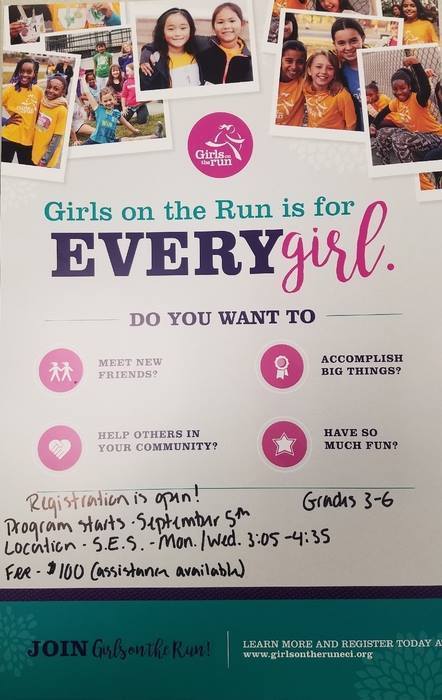 Girls on the run
Girls on the Run is for
EVERYgirl.
DO YOU WANT TO
MEET NEW
FRIENDS?
ACCOMPLISH
BIG THINGS?
HELP OTHERS IN
YOUR COMMUNITY?
HAVE SO
MUCH FUN?
Registration is open!
Grades 3-6
Program starts - September 5th
Location - S.E.S. - Mon./Wed. 3:05 - 4:35
Fee - $100 (assistance available)
JOIN Girls on the Run!
LEARN MORE AND REGISTER TODAY A
www.girlsontheruneci.org